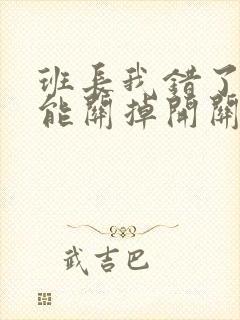 班長我錯了
能關掉開關
武吉巴